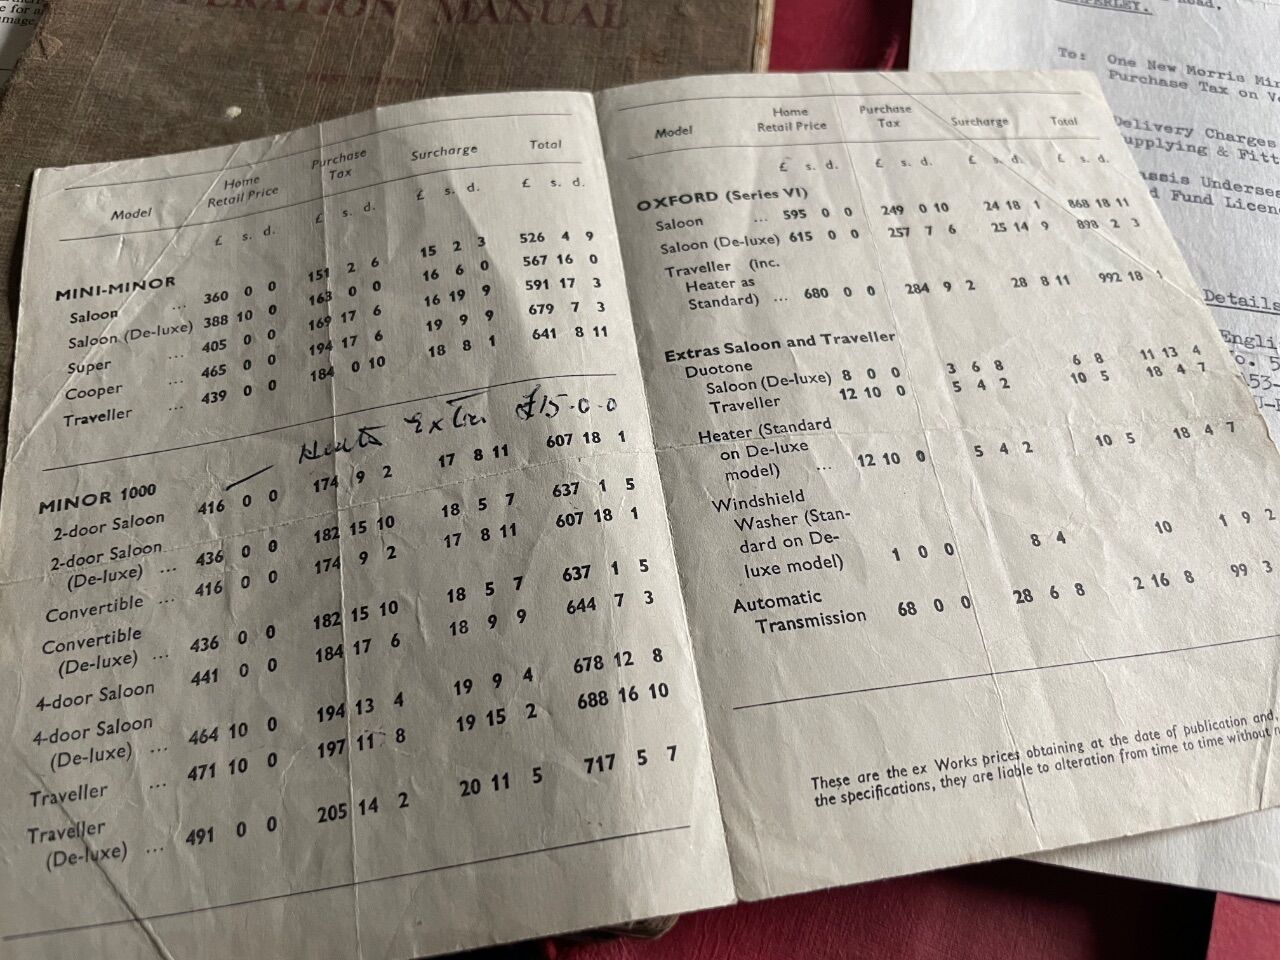 OPERATION MANUAL
Model Home Retail Price Purchase Tax Surcharge Total
£ s. d. £ s. d. £ s. d. £ s. d.
MINI-MINOR
Saloon ... 360 0 0 151 2 6 15 2 3 526 4 9
Saloon (De-luxe) 388 10 0 163 0 0 16 6 0 567 16 0
Super ... 405 0 0 169 17 6 16 19 9 591 17 3
Cooper ... 465 0 0 194 17 6 19 9 9 679 7 3
Traveller ... 439 0 0 184 0 10 18 8 1 641 8 11
Ex £15-0-0
MINOR 1000
2-door Saloon 416 0 0 174 9 2 17 8 11 607 18 1
2-door Saloon
(De-luxe) ... 436 0 0 182 15 10 18 5 7 637 1 5
Convertible ... 416 0 0 174 9 2 17 8 11 607 18 1
Convertible
(De-luxe) ... 436 0 0 182 15 10 18 5 7 637 1 5
4-door Saloon 441 0 0 184 17 6 18 9 9 644 7 3
4-door Saloon
(De-luxe) ... 464 10 0 194 13 4 19 9 4 678 12 8
Traveller ... 471 10 0 197 11 8 19 15 2 688 16 10
Traveller
(De-luxe) ... 491 0 0 205 14 2 20 11 5 717 5 7
Model Home Retail Price Purchase Tax Surcharge Total
£ s. d. £ s. d. £ s. d. £ s. d.
OXFORD (Series VI)
Saloon ... 595 0 0 249 0 10 24 18 1 868 18 11
Saloon (De-luxe) 615 0 0 257 7 6 25 14 9 898 2 3
Traveller (inc.
Heater as
Standard) ... 680 0 0 284 9 2 28 8 11 992 18 1
Extras Saloon and Traveller
Duotone
Saloon (De-luxe) 8 0 0 3 6 8 6 8 11 13 4
Traveller 12 10 0 5 4 2 10 5 18 4 7
Heater (Standard
on De-luxe
model) ... 12 10 0 5 4 2 10 5 18 4 7
Windshield
Washer (Stan-
dard on De-
luxe model) 1 0 0 8 4 10 1 9 2
Automatic
Transmission 68 0 0 28 6 8 2 16 8 99 3
These are the ex Works prices obtaining at the date of publication and,
the specifications, they are liable to alteration from time to time without
To: One New Morris
Purchase Tax on
Delivery Charges
Supplying &
Details